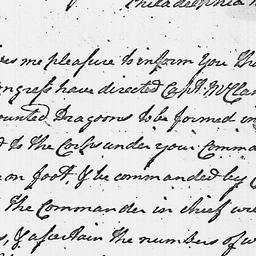 Philadelphia
es me pleasure to inform you Tha
ongress have directed Capt. McLan
ounted Dragoons to be formed in
d to the Corps under your Comma
m on foot, & be commanded by C
The Commander in chief wi
s, & ascertain the numbers of w